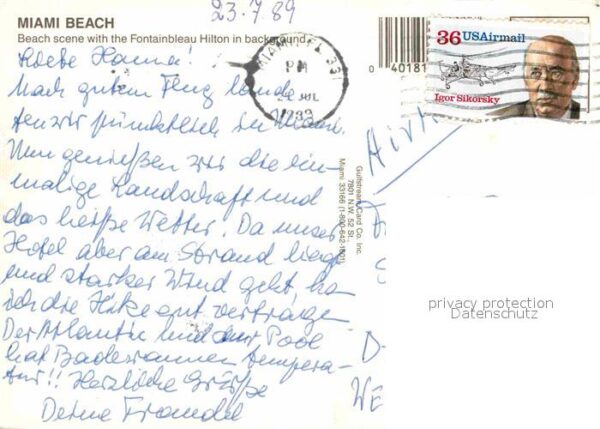 23.7.89
MIAMI BEACH
Beach scene with the Fontainbleau Hilton in background
Liebe Hanna!
Nach gutem Flug lande-
ten wir pünktlich in Miami.
Nun genießen wir die ein-
malige Landschaft und
das heiße Wetter. Da unser
Hotel aber am Strand liegt
und starker Wind geht, ka
ich die Hitze gut vertrage
Der Atlantic und der Pool
hat Badewannen tempera-
tur!! Herzliche Grüße
Deine
MIAMI, FL 331
PM
JUL
1989
0 40181
36 USAirmail
Igor Sikorsky
Gulfstream Card Co. Inc.
7801 N.W. 52 St.
Miami 33166 (1-800-642-1801)
privacy protection
Datenschutz
D
WE